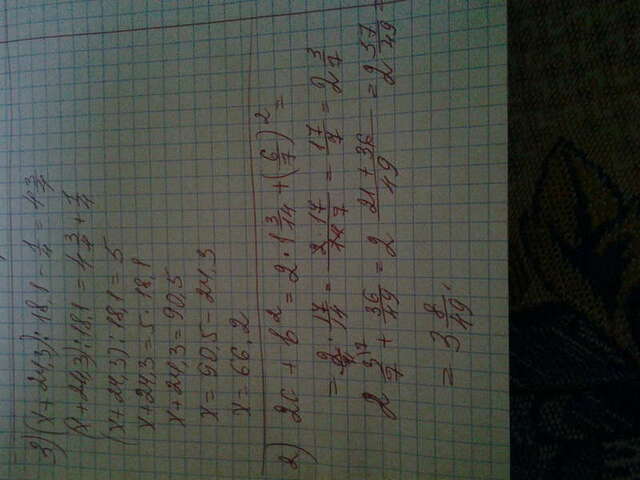 3) (x+24,3):18,1 - 1/4 = 4 3/4
(x+24,3):18,1 = 4 3/4 + 1/4
(x+24,3):18,1 = 5
x+24,3 = 5·18,1
x+24,3 = 90,5
x = 90,5 - 24,3
x = 66,2
2) 2c + b² = 2·1 3/14 + (6/7)² =
= 2/1 · 17/14 = 2·17/14 7 = 17/7 = 2 3/7
2 3/7 + 36/49 = 2 21+36/49 = 2 57/49 =
= 3 8/49